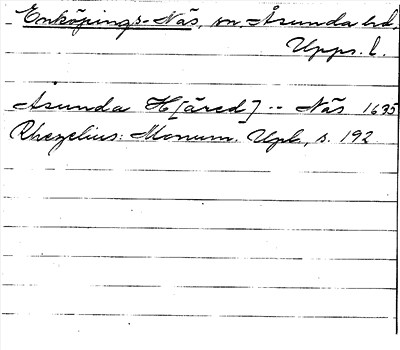 Enköpings-Näs, sn, Åsunda hd,
Upps. l.
Åsunda H[äred] -- Näs 1635
Rhezelius: Monum. Upl., s. 192